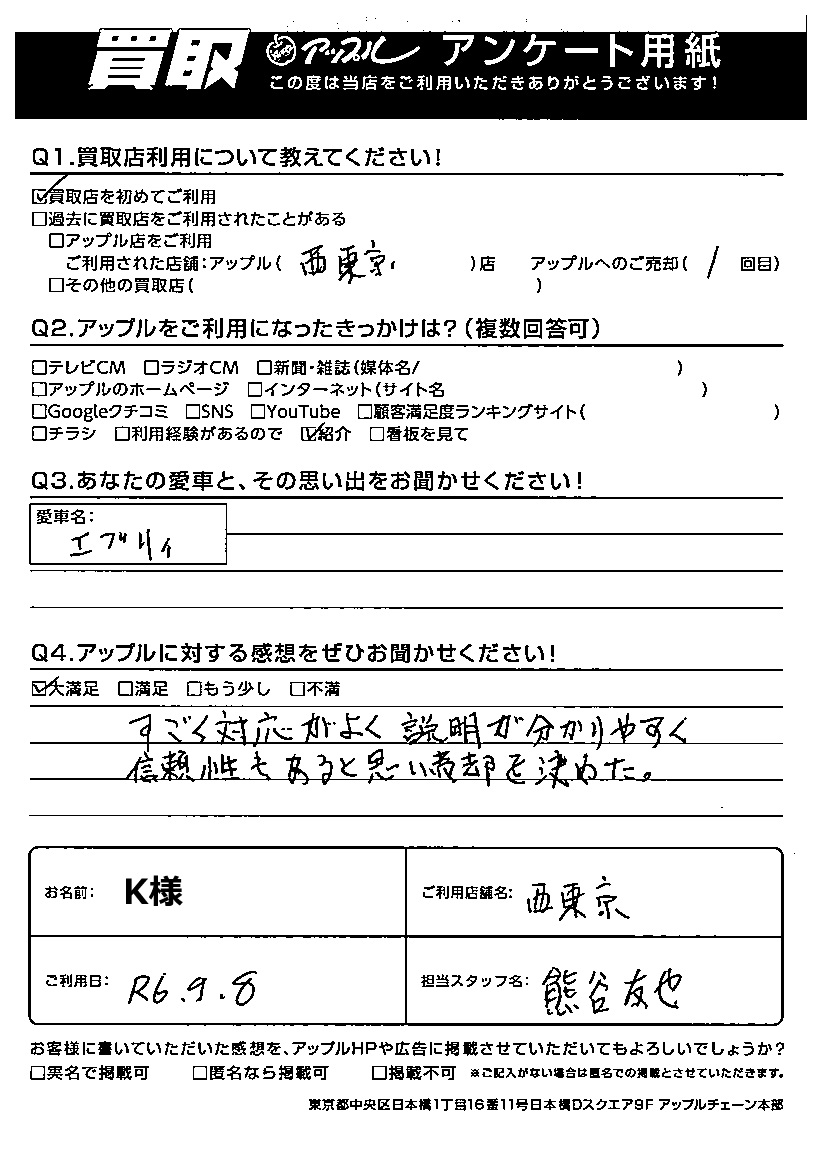 買取 アップル アンケート用紙
この度は当店をご利用いただきありがとうございます!
Q1.買取店利用について教えてください!
☑買取店を初めてご利用
□過去に買取店をご利用されたことがある
□アップル店をご利用
ご利用された店舗:アップル( 西東京 )店 アップルへのご売却( / 回目)
□その他の買取店( )
Q2.アップルをご利用になったきっかけは?(複数回答可)
□テレビCM □ラジオCM □新聞・雑誌(媒体名/ )
□アップルのホームページ □インターネット(サイト名 )
□Googleクチコミ □SNS □YouTube □顧客満足度ランキングサイト( )
□チラシ □利用経験があるので ☑紹介 □看板を見て
Q3.あなたの愛車と、その思い出をお聞かせください!
愛車名:
エブリィ
Q4.アップルに対する感想をぜひお聞かせください!
☑大満足 □満足 □もう少し □不満
すごく対応がよく説明が分かりやすく
信頼性もあると思い売却を決めた。
お名前: K様 ご利用店舗名: 西東京
ご利用日: R6.9.8 担当スタッフ名: 熊谷友也
お客様に書いていただいた感想を、アップルHPや広告に掲載させていただいてもよろしいでしょうか?
□実名で掲載可 □匿名なら掲載可 □掲載不可 ※ご記入がない場合は匿名での掲載とさせていただきます。
東京都中央区日本橋1丁目16番11号日本橋Dスクエア9F アップルチェーン本部